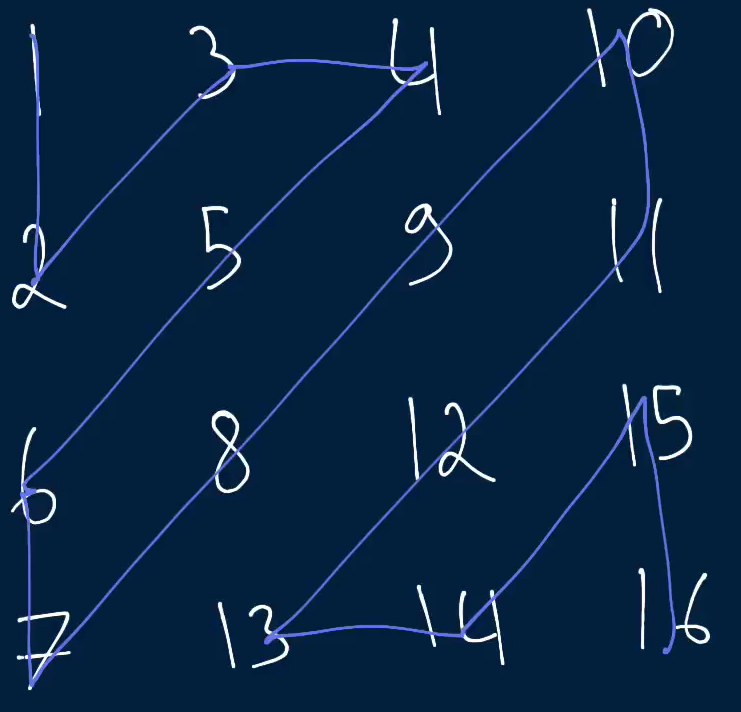 1 3 4 10
2 5 9 11
6 8 12 15
7 13 14 16